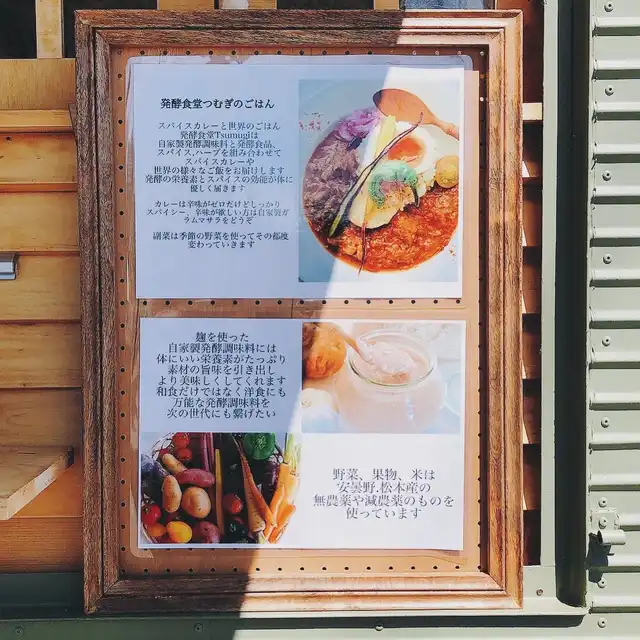 発酵食堂つむぎのごはん
スパイスカレーと世界のごはん
発酵食堂Tsumugiは
自家製発酵調味料と発酵食品、
スパイス,ハーブを組み合わせて
スパイスカレーや
世界の様々なご飯をお届けします
発酵の栄養素とスパイスの効能が体に
優しく届きます
カレーは辛味がゼロだけどしっかり
スパイシー、辛味が欲しい方は自家製ガ
ラムマサラをどうぞ
副菜は季節の野菜を使ってその都度
変わっていきます
麹を使った
自家製発酵調味料には
体にいい栄養素がたっぷり
素材の旨味を引き出し
より美味しくしてくれます
和食だけではなく洋食にも
万能な発酵調味料を
次の世代にも繋げたい
野菜、果物、米は
安曇野,松本産の
無農薬や減農薬のものを
使っています